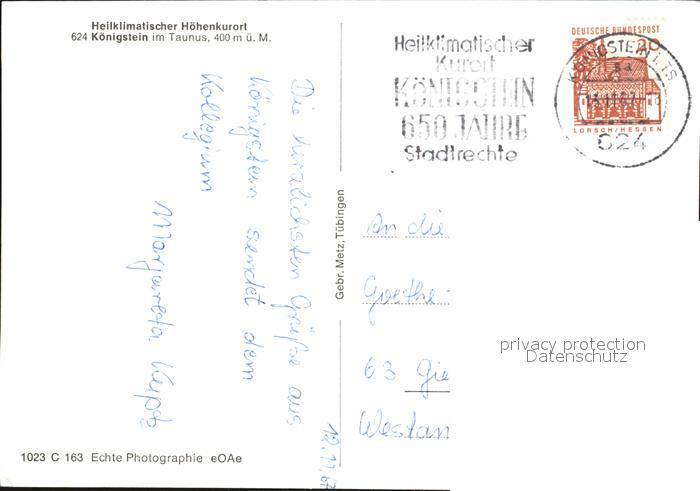 Heilklimatischer Höhenkurort
624 Königstein im Taunus, 400 m ü. M.
Die herzlichsten Grüße aus
Königstein sendet dem
Kollegium
Margareta
12.11.67
1023 C 163 Echte Photographie eOAe
Gebr. Metz, Tübingen
Heilklimatischer
Kurort
KÖNIGSTEIN
650 JAHRE
Stadtrechte
DEUTSCHE BUNDESPOST
20
LORSCH/HESSEN
KÖNIGSTEIN I. TS
624
An die
Goethe-
63 Gie
Westan
privacy protection
Datenschutz